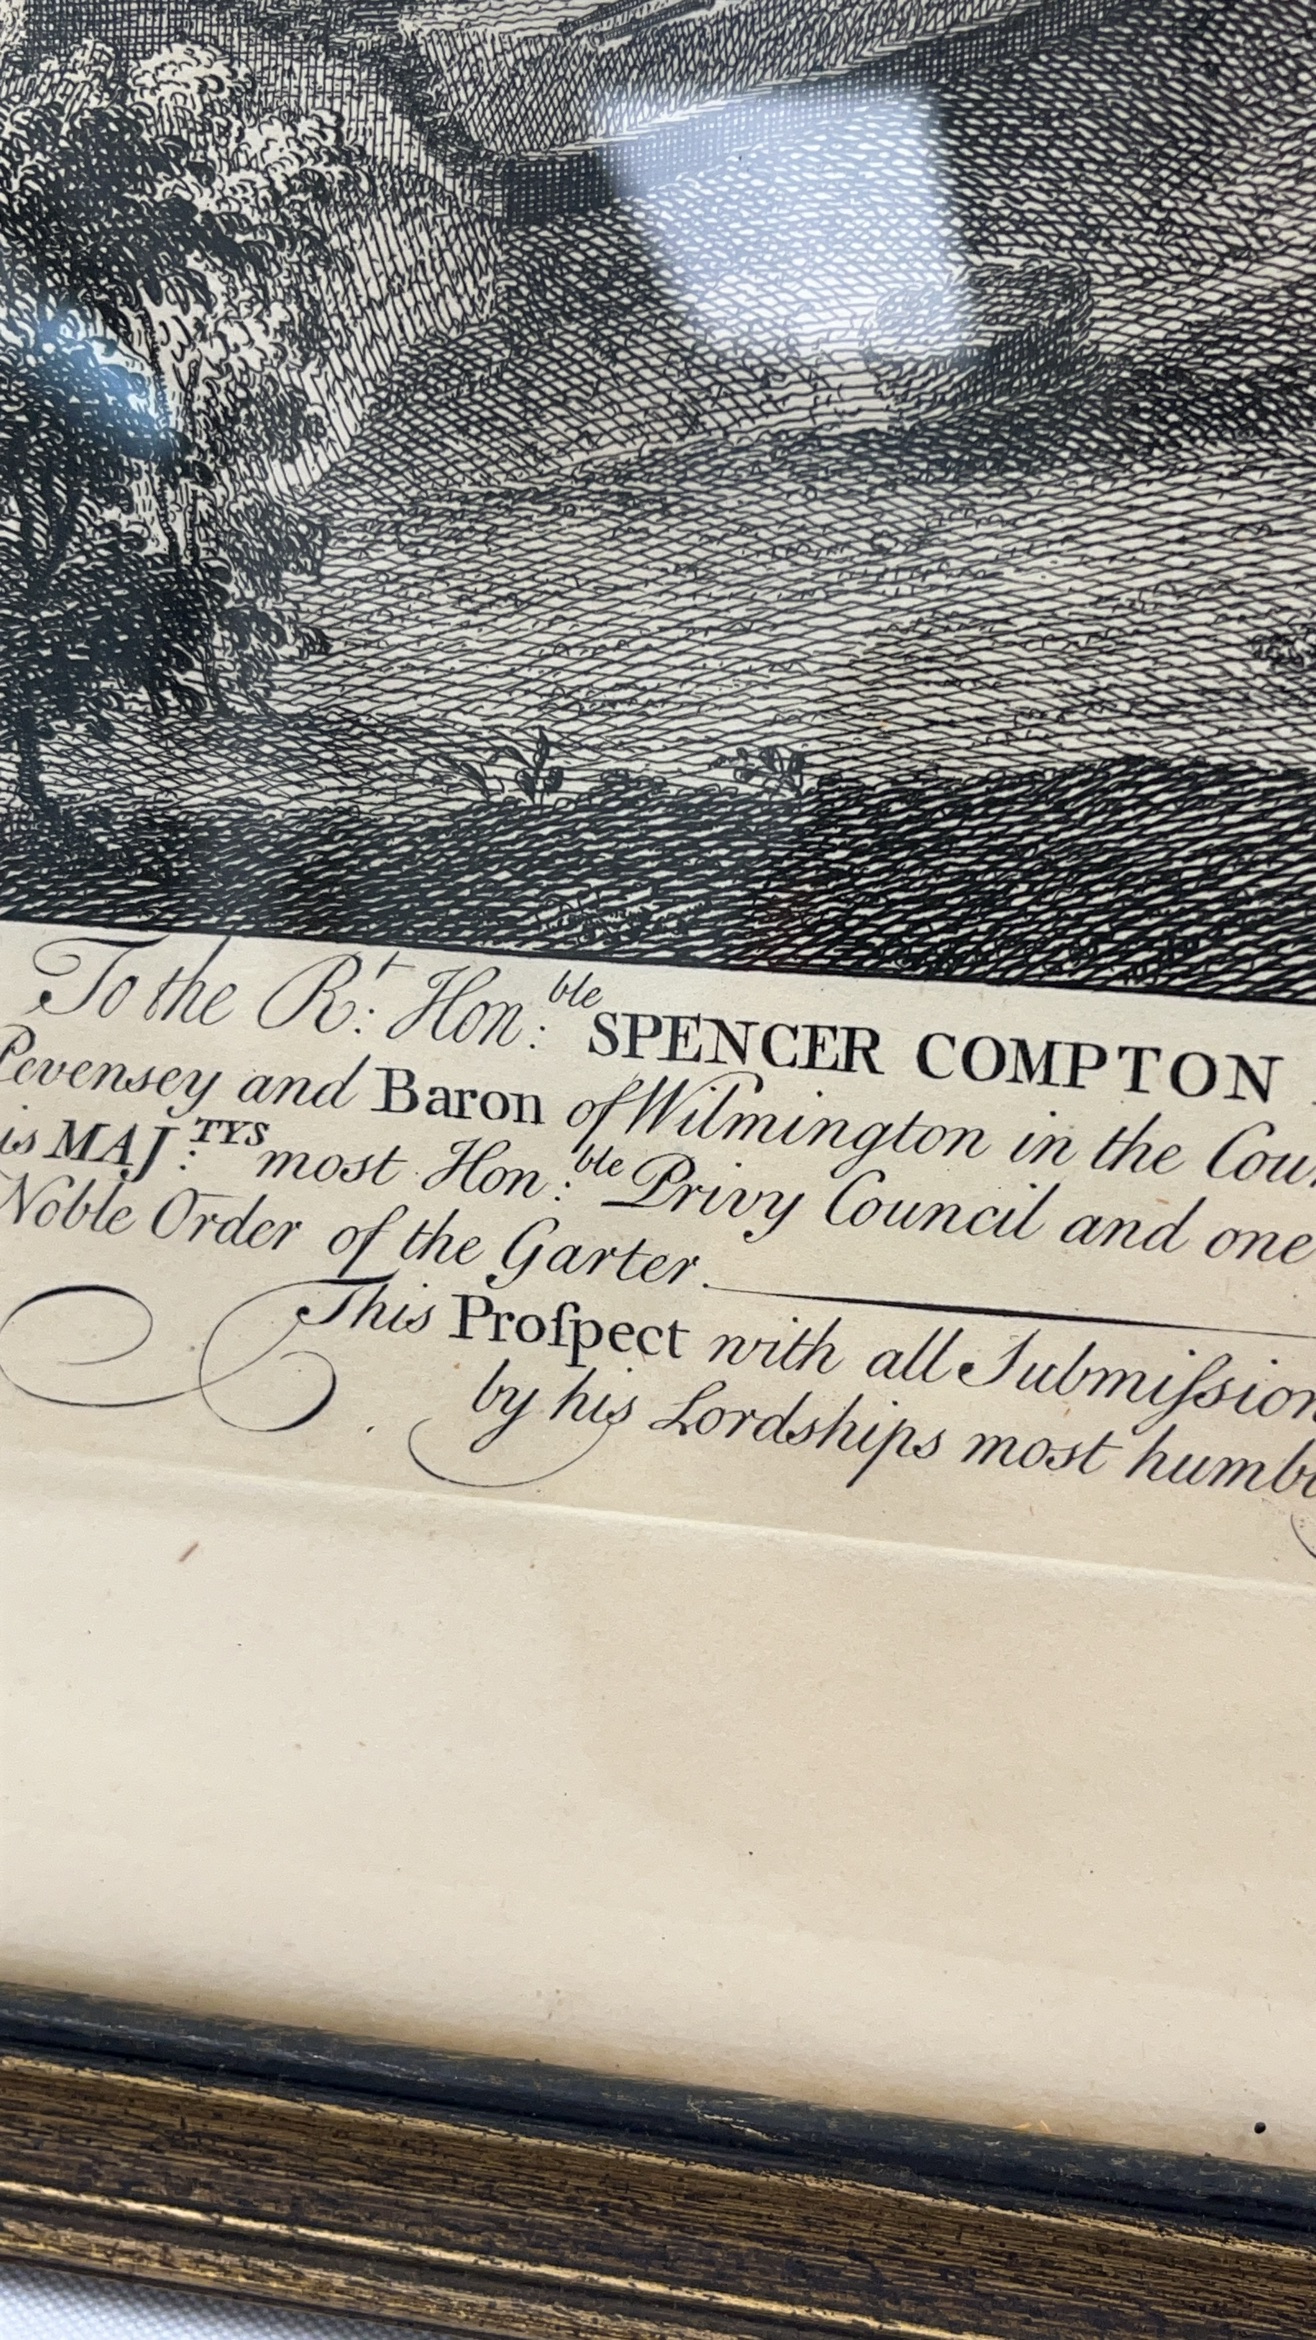 To the Rᵗ: Hon:ᵇˡᵉ SPENCER COMPTON
Pevensey and Baron of Wilmington in the Cou
is MAJ:ᵀʸˢ most Hon:ᵇˡᵉ Privy Council and one
Noble Order of the Garter.
This Proſpect with all Submiſsion
by his Lordships most humb